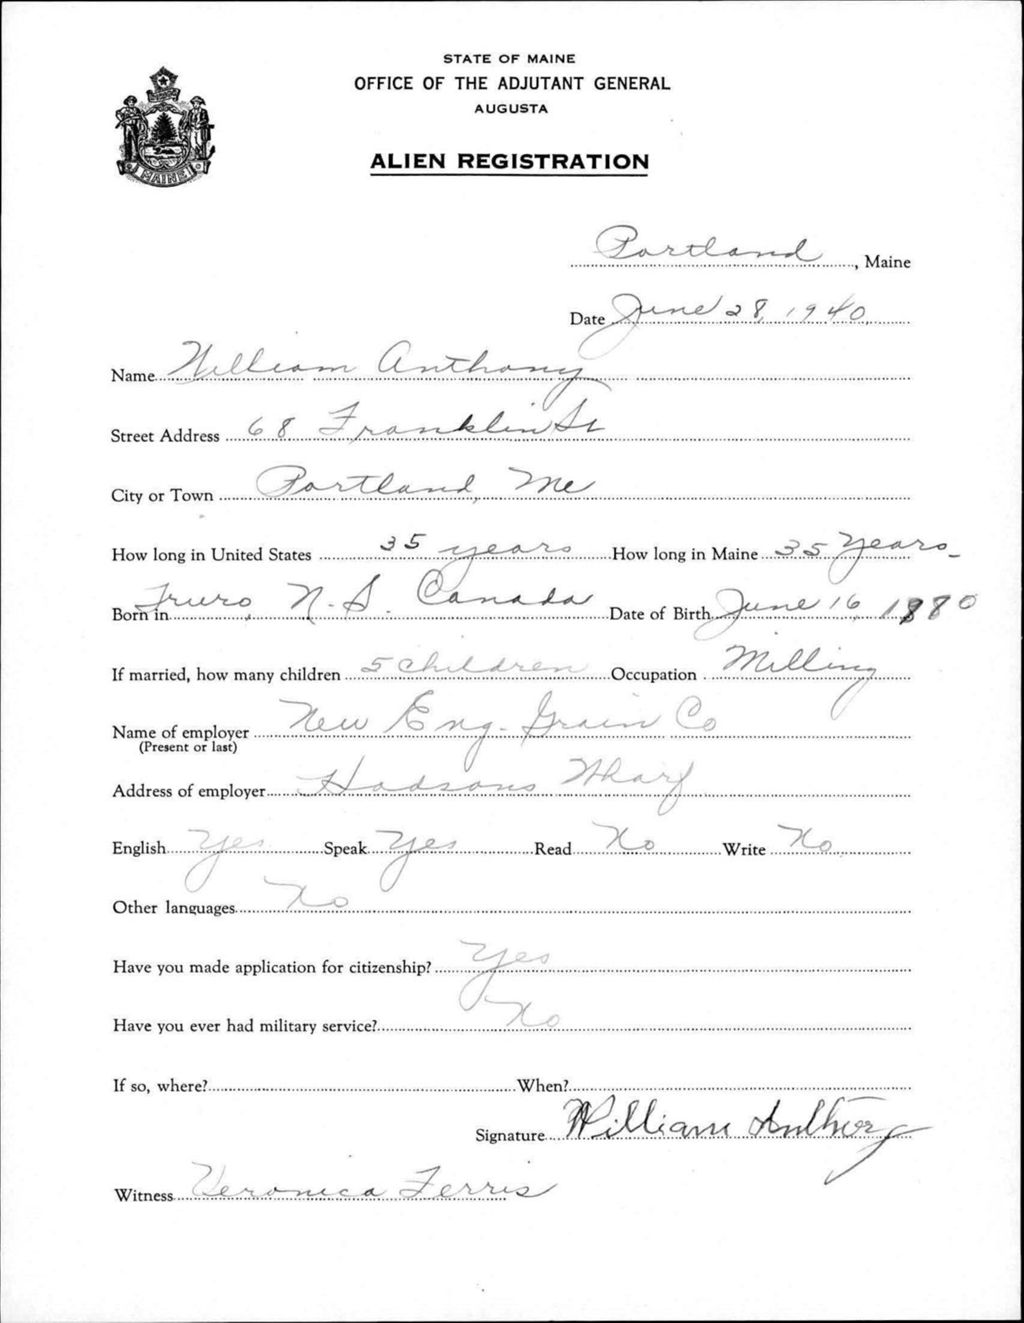 STATE OF MAINE
OFFICE OF THE ADJUTANT GENERAL
AUGUSTA
ALIEN REGISTRATION
MAINE
Portland, Maine
Date June 28, 1940
Name William Anthony
Street Address 68 Franklin St
City or Town Portland, Me
How long in United States 35 years How long in Maine 35 Years
Born in Truro, N.S. Canada Date of Birth June 16, 1880
If married, how many children 5 children Occupation Milling
Name of employer New Eng. Grain Co
(Present or last)
Address of employer Hodsons Wharf
English Yes Speak Yes Read No Write No
Other languages No
Have you made application for citizenship? Yes
Have you ever had military service? No
If so, where? When?
Signature William Anthony
Witness Veronica Ferris